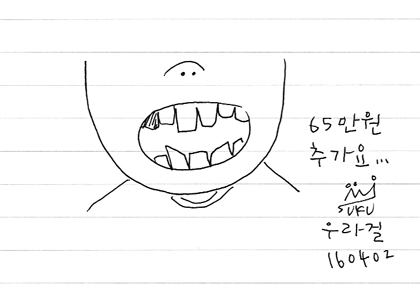 65만원
추가요...
SUKU
우라걸
160402